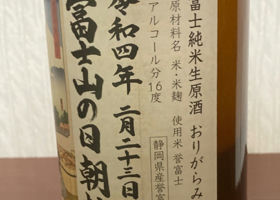 富士純米生原酒 おりがらみ
原材料名 米・米麹 使用米 誉富士
アルコール分16度
静岡県産誉富
令和四年 二月二十三日
富士山の日朝